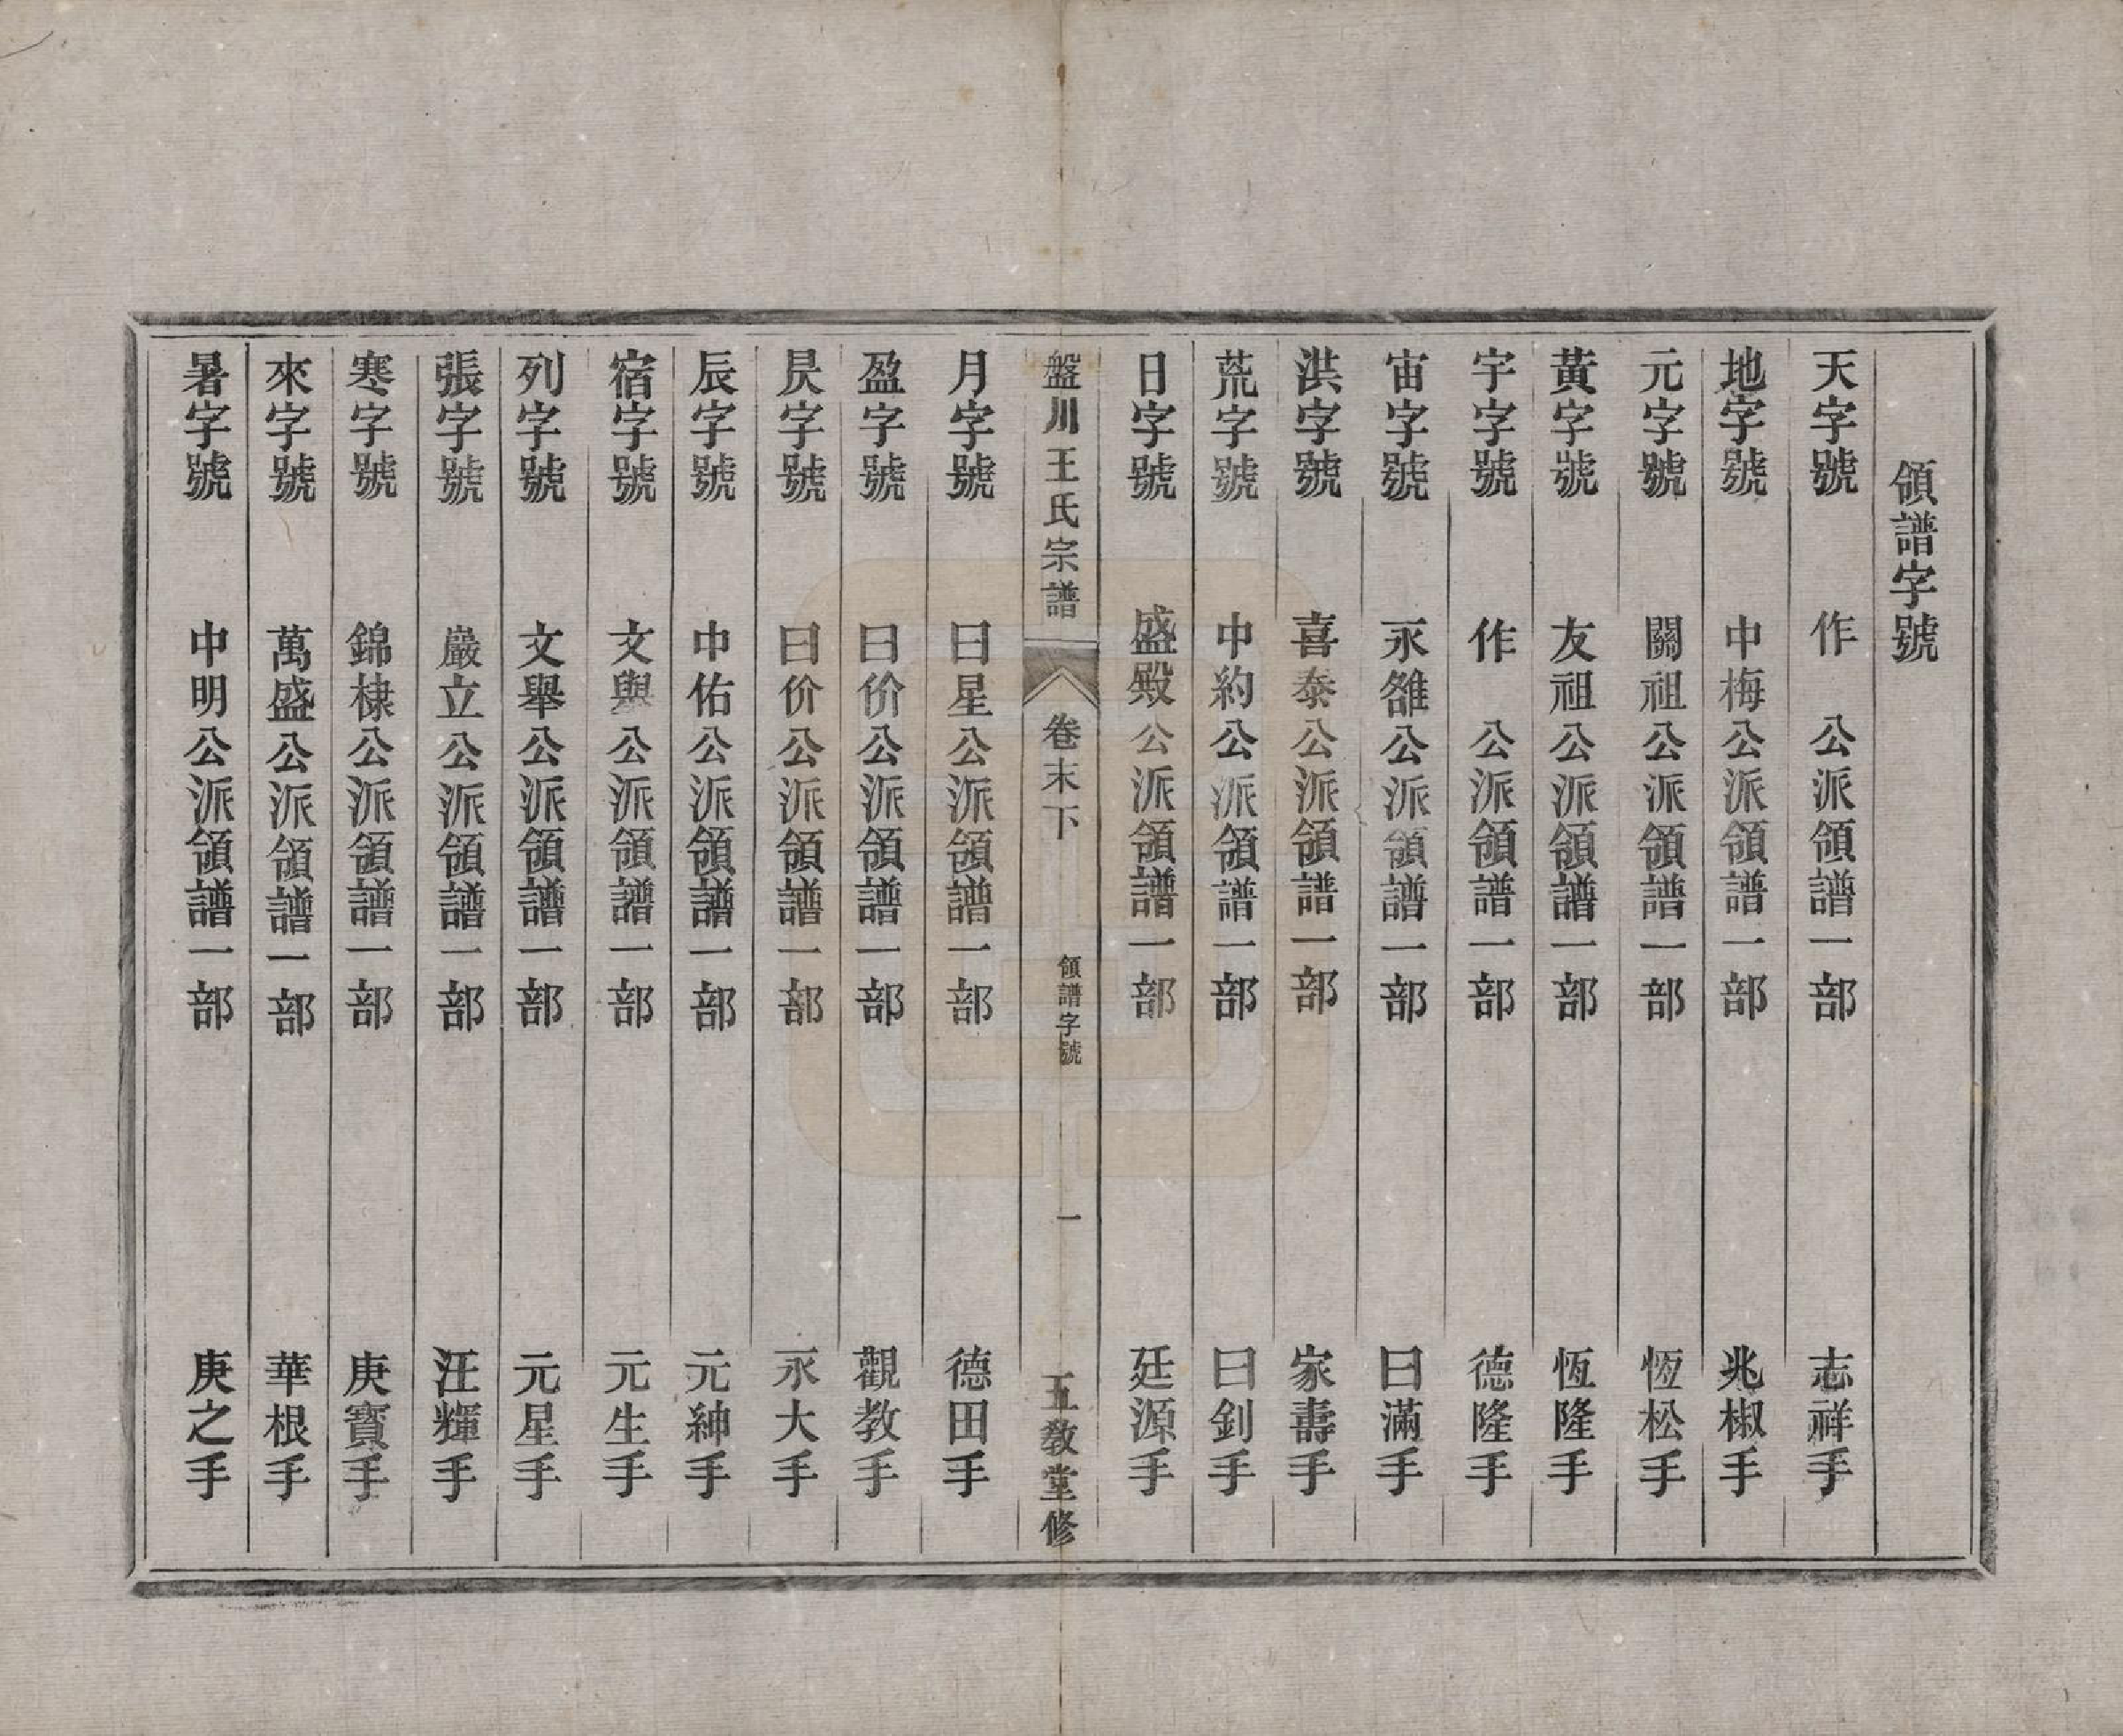 領譜字號
天字號 作 公派領譜一部 志祥手
地字號 中梅公派領譜一部 兆椒手
元字號 關祖公派領譜一部 恆松手
黃字號 友祖公派領譜一部 恆隆手
宇字號 作 公派領譜一部 德隆手
宙字號 永雒公派領譜一部 曰滿手
洪字號 喜泰公派領譜一部 家壽手
荒字號 中約公派領譜一部 曰釗手
日字號 盛殿公派領譜一部 廷源手
盤川王氏宗譜 卷末下 領譜字號 一 五教堂修
月字號 曰星公派領譜一部 德田手
盈字號 曰价公派領譜一部 觀教手
昃字號 曰价公派領譜一部 永大手
辰字號 中佑公派領譜一部 元紳手
宿字號 文輿公派領譜一部 元生手
列字號 文舉公派領譜一部 元星手
張字號 巖立公派領譜一部 汪輝手
寒字號 錦棣公派領譜一部 庚寶手
來字號 萬盛公派領譜一部 華根手
暑字號 中明公派領譜一部 庚之手